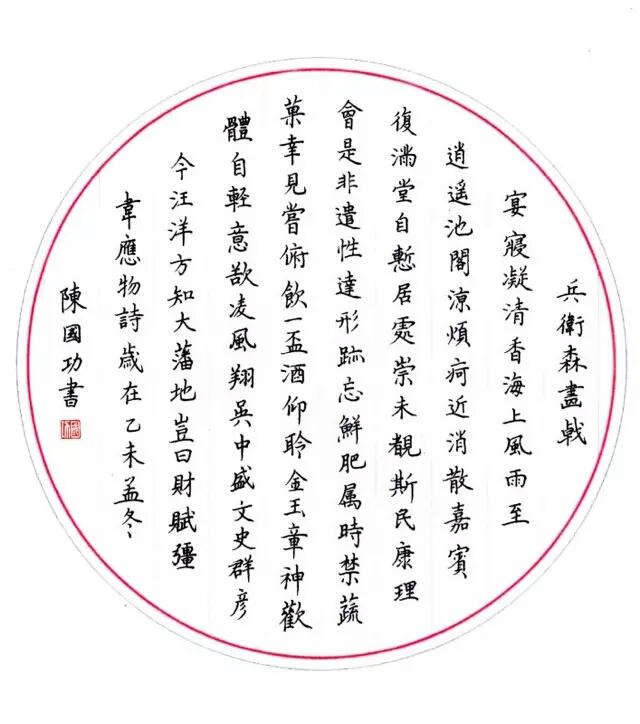 兵衛森畫戟
宴寢凝清香海上風雨至
逍遥池閣涼煩疴近消散嘉賓
復滿堂自慙居處崇未覩斯民康理
會是非遣性達形跡忘鮮肥属時禁蔬
菓幸見嘗俯飲一盃酒仰聆金玉章神歡
體自輕意欲凌風翔吳中盛文史群彦
今汪洋方知大藩地豈曰財賦彊
韋應物詩歳在乙未孟冬
陳國功書